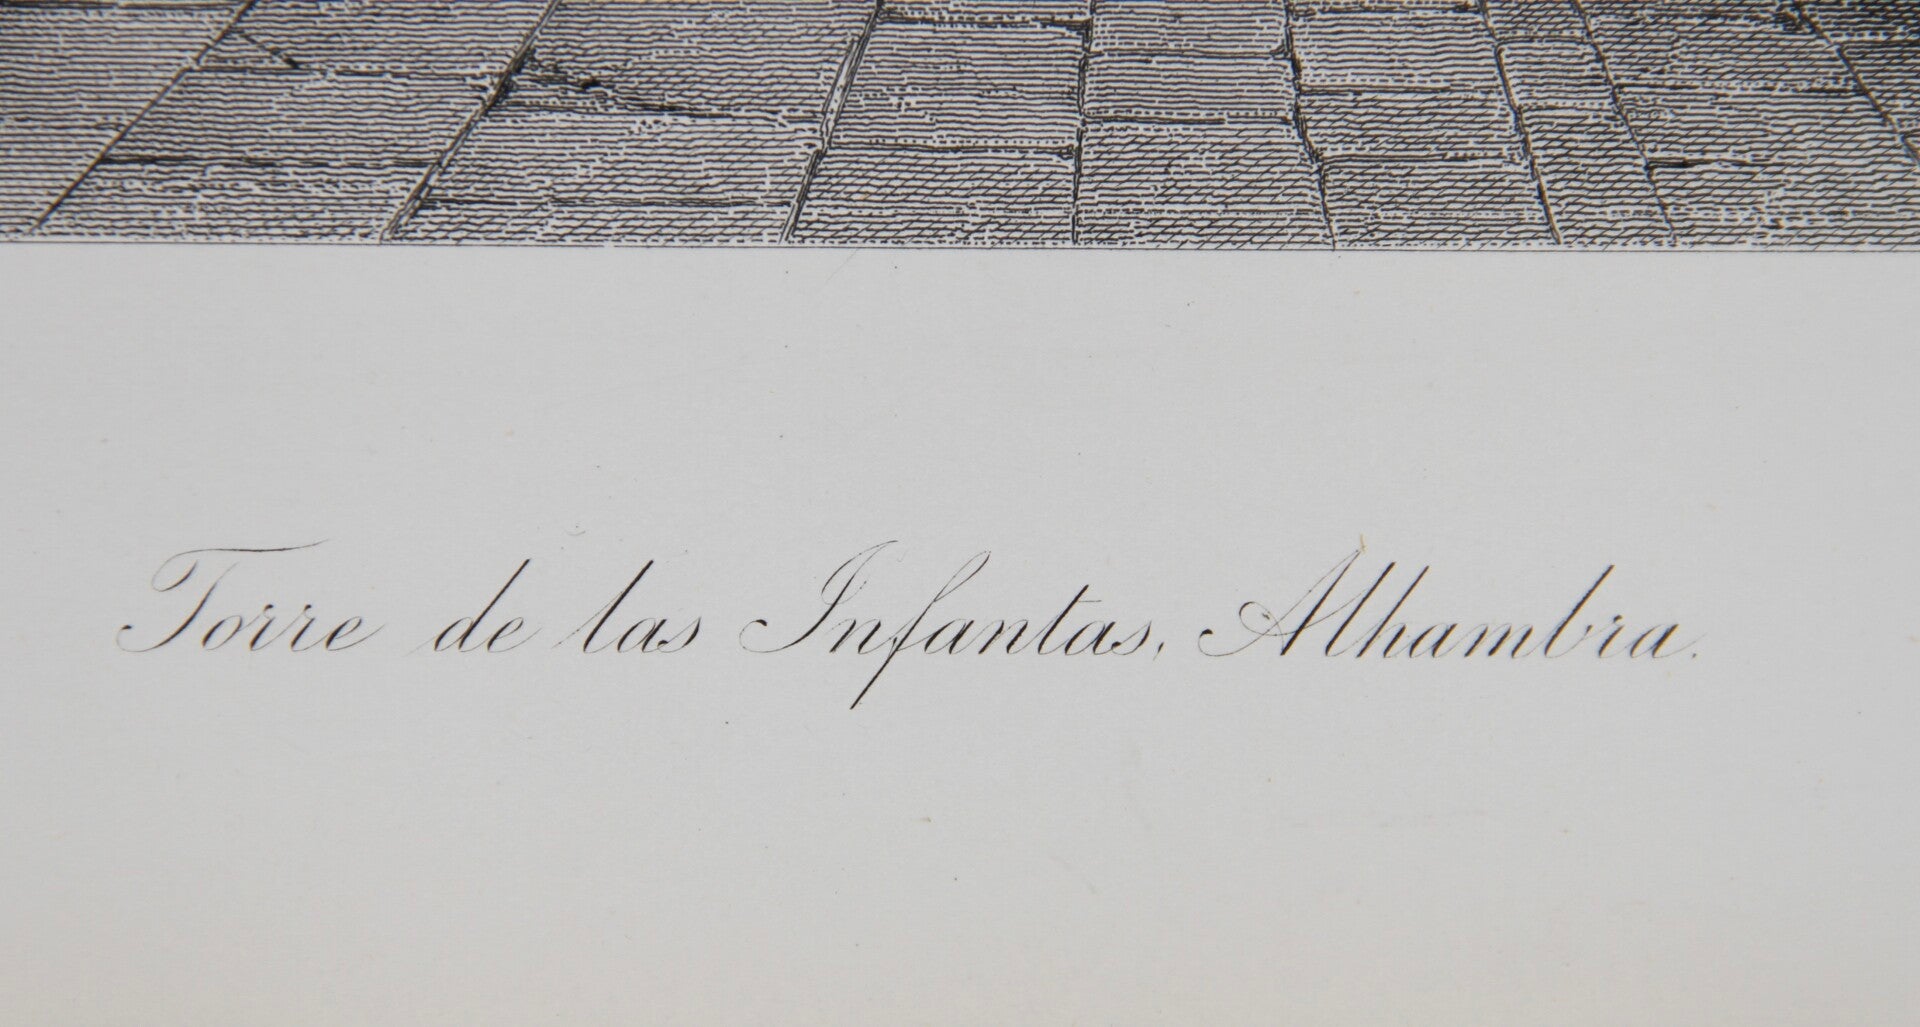 Torre de las Infantas, Alhambra.